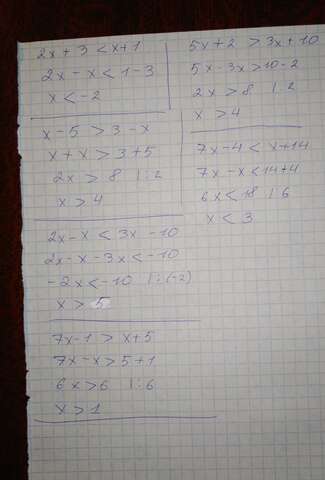 2x + 3 < x + 1
2x - x < 1 - 3
x < -2
x - 5 > 3 - x
x + x > 3 + 5
2x > 8 |:2
x > 4
2x - x < 3x - 10
2x - x - 3x < -10
-2x < -10 |:(-2)
x > 5
7x - 1 > x + 5
7x - x > 5 + 1
6x > 6 |:6
x > 1
5x + 2 > 3x + 10
5x - 3x > 10 - 2
2x > 8 |:2
x > 4
7x - 4 < x + 14
7x - x < 14 + 4
6x < 18 |:6
x < 3